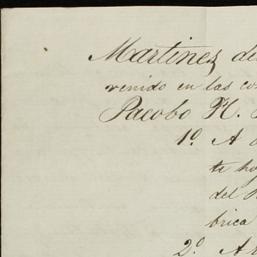 Martinez de
venido en las co
Pacobo H.
1º A
te ho
del
brica
2º A